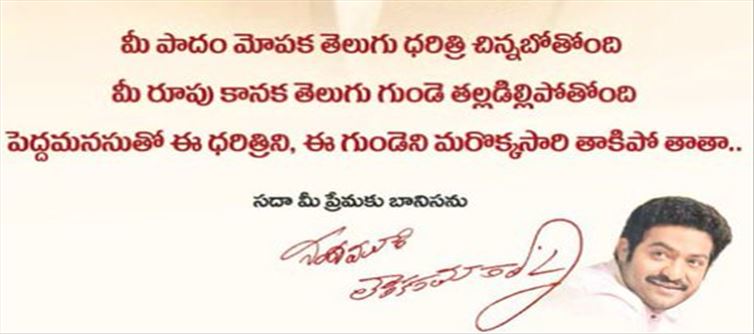 మీ పాదం మోపక తెలుగు ధరిత్రి చిన్నబోతోంది
మీ రూపు కానక తెలుగు గుండె తల్లడిల్లిపోతోంది
పెద్దమనసుతో ఈ ధరిత్రిని, ఈ గుండెని మరొక్కసారి తాకిపో తాతా..
సదా మీ ప్రేమకు బానిసను